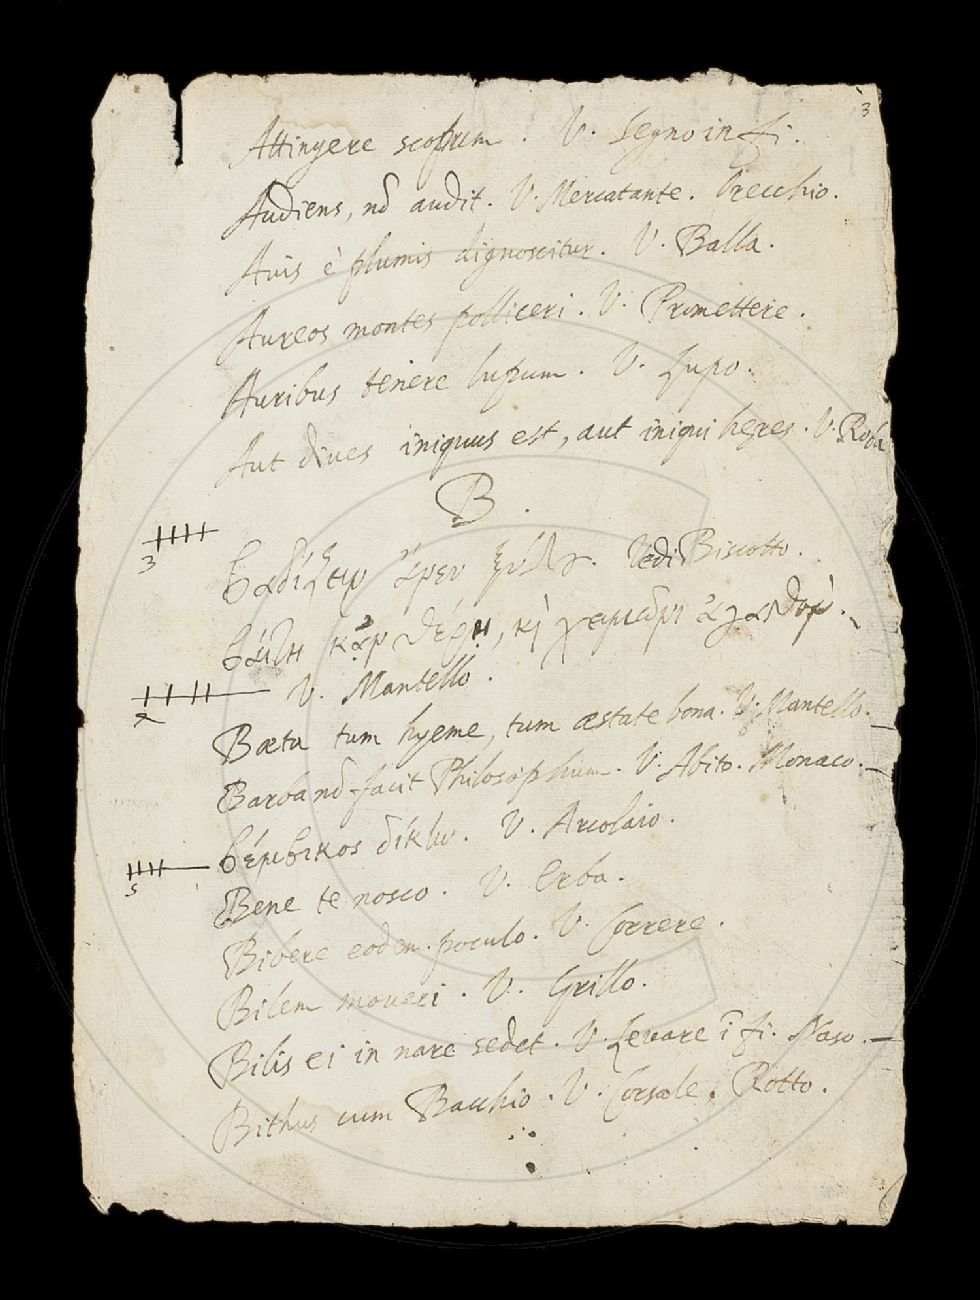 3
Attingere scopum. V. Segno in fi.
Audiens, nō audit. V. Mercatante. Orecchio.
Auis è plumis dignoscitur. V. Balla.
Aureos montes polliceri. V. Promettere.
Auribus tenere lupum. V. Lupo.
Aut diues iniquus est, aut iniqui heres. V. Roba
B.
βαδίζειν ἄνευ ξύλου. Vedi Biscotto.
3
βαίτη κἀν θέρει, κὴ χειμῶνι ἀγαθόν.
V. Mantello.
2
Bæta tum hyeme, tum æstate bona. V. Mantello.
Barba nō facit Philosophum. V. Abito. Monaco.
βέμβικος δίκην. V. Arcolaio.
5
Bene te nosco. V. Erba.
Bibere eodem poculo. V. Correre.
Bilem moueri. V. Grillo.
Bilis ei in nare sedet. V. Leuare ī fi. Naso.
Bithus cum Bacchio. V. Corsale. Rotto.